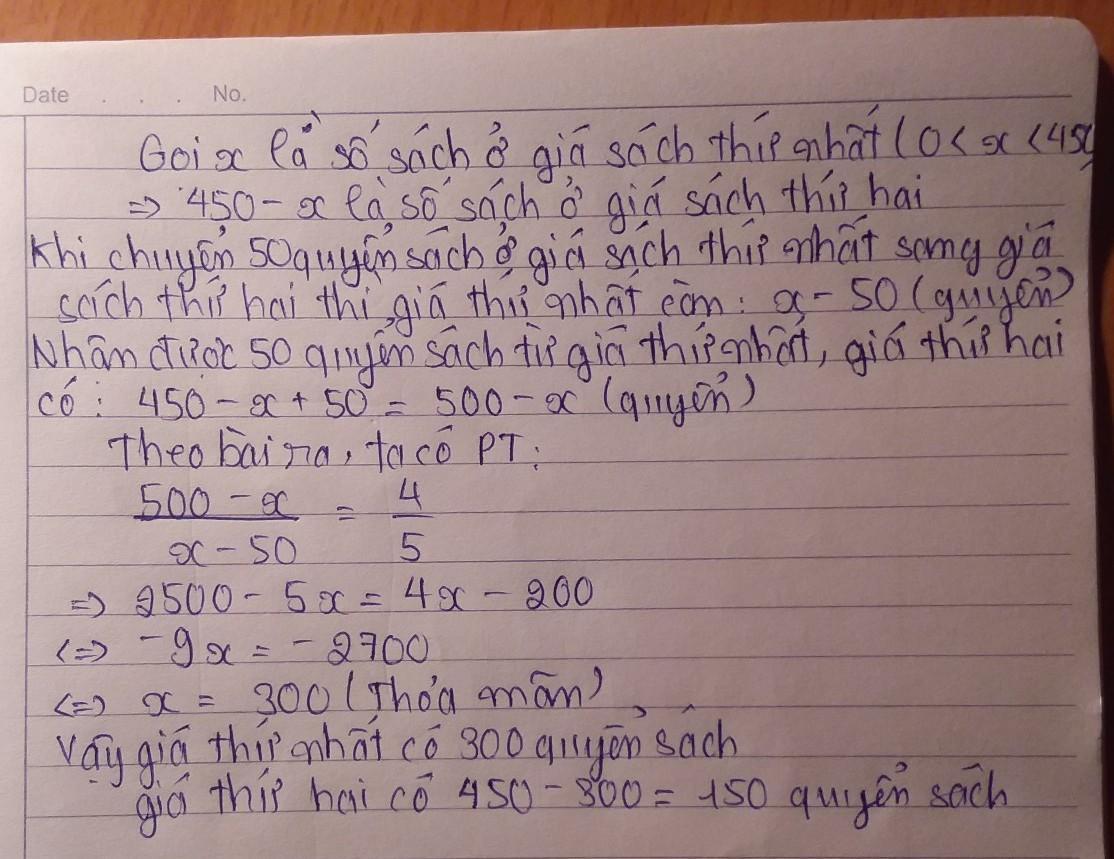 Date . . . No.
Gọi x là số sách ở giá sách thứ nhất (0 < x < 450
=> 450 - x là số sách ở giá sách thứ hai
Khi chuyển 50 quyển sách ở giá sách thứ nhất sang giá
sách thứ hai thì giá thứ nhất còn: x - 50 (quyển)
Nhận được 50 quyển sách từ giá thứ nhất, giá thứ hai
có: 450 - x + 50 = 500 - x (quyển)
Theo bài ra, ta có PT:
500 - x / x - 50 = 4 / 5
=> 2500 - 5x = 4x - 200
<=> -9x = -2700
<=> x = 300 (Thỏa mãn)
Vậy giá thứ nhất có 300 quyển sách
giá thứ hai có 450 - 300 = 150 quyển sách